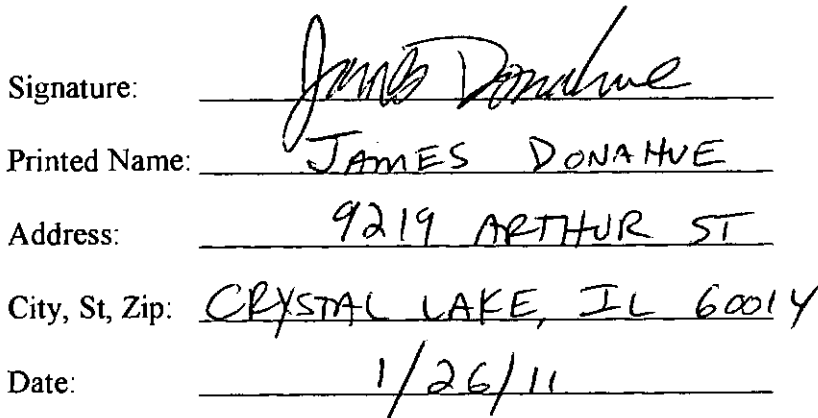 Signature: James Donahue
Printed Name: JAMES DONAHUE
Address: 9219 ARTHUR ST
City, St, Zip: CRYSTAL LAKE, IL 60014
Date: 1/26/11